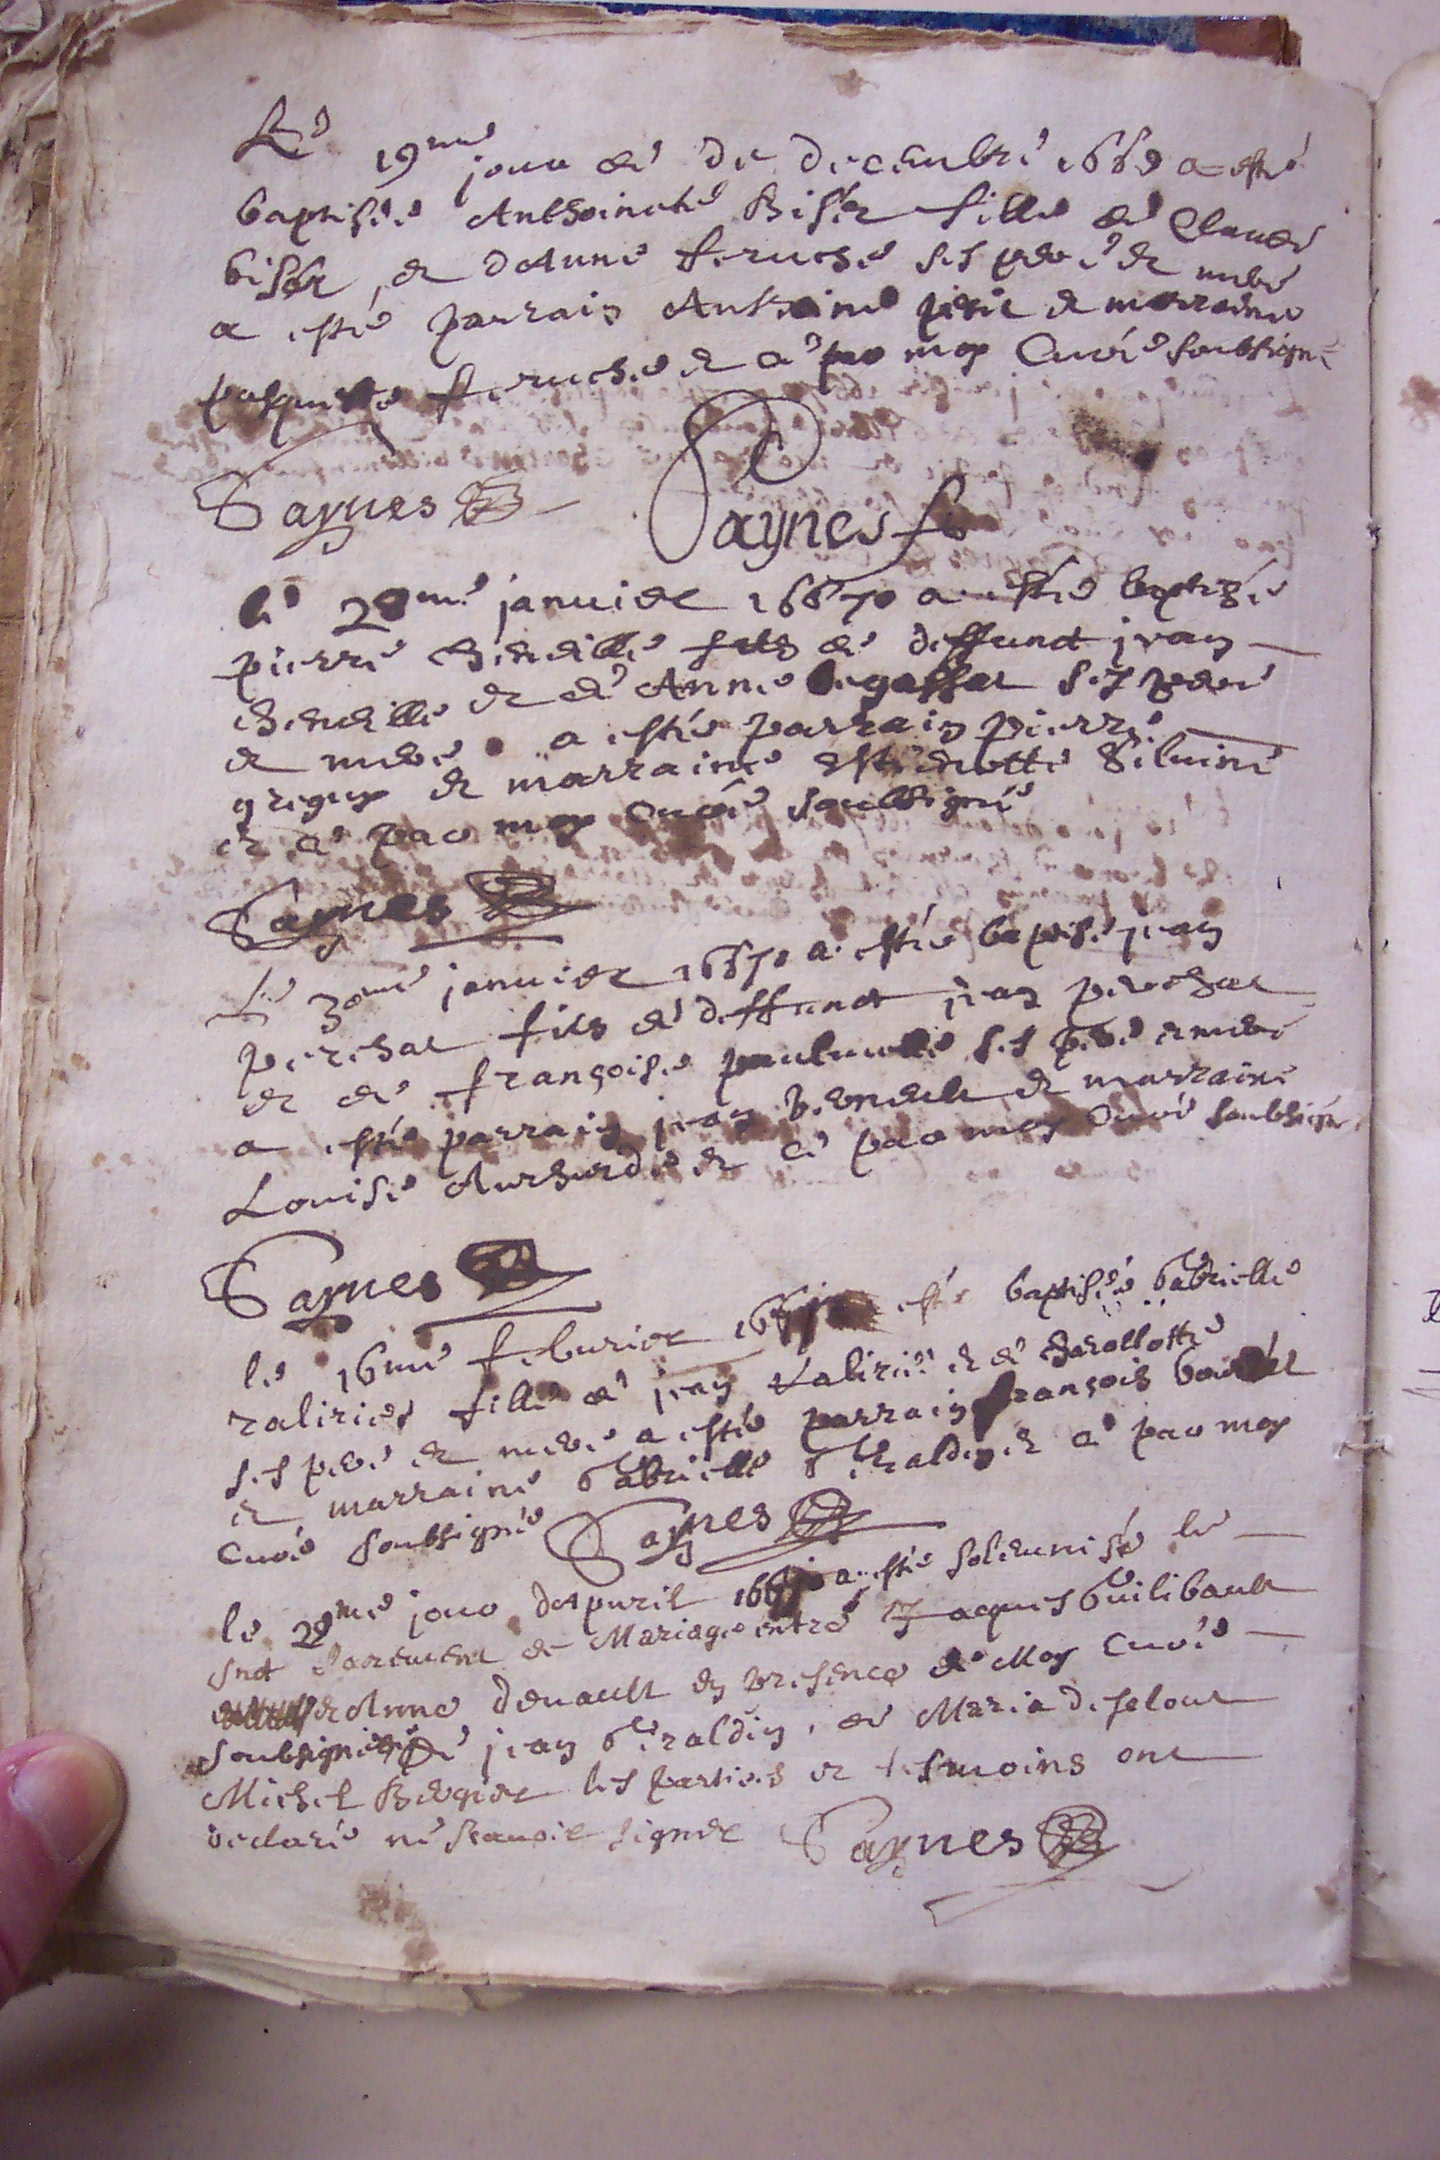 Le 19me jour de de decembre 1669 a esté
baptisée Anthoinette Bisér fille de Claude
bisér, et d'Anne feruche ses pere et mere
a esté parrain Anthoine petit et marraine
pasquette feruche et ce par moy Curé soubsigné
Saynes
Saynes
le 28me januier 1670 a esté baptisée
pierre fils de deffunct jean
et de Anne ses pere
et mere a esté parrain pierre
greguy et marraine Estiennotte Siluine
et ce par moy Curé soubsigné
Saynes
Le 30me januier 1670 a esté baptisé jean
perchat fils de deffunct jean perchat
et de françoise ses pere et mere
a esté parrain jean et marraine
Louise et ce par moy Curé soubsigné
Saynes
le 16me feburier esté baptisée Gabrielle
ralirier fille de jean et de Charollotte
ses pere et mere a esté parrain françois
et marraine Gabrielle Giraldin et ce par moy
Curé soubsigné Saynes
le 22me jour d'apuril 1670 a esté solemnisé le
snct Sacrement de Mariage entre Jaques Guilibault
et Anne deuault en presence de Moy Curé
soubsigné jean Giraldin, de Maria
Michel Bergier les parties et tesmoins ont
declaré ne scauoir signer Saynes